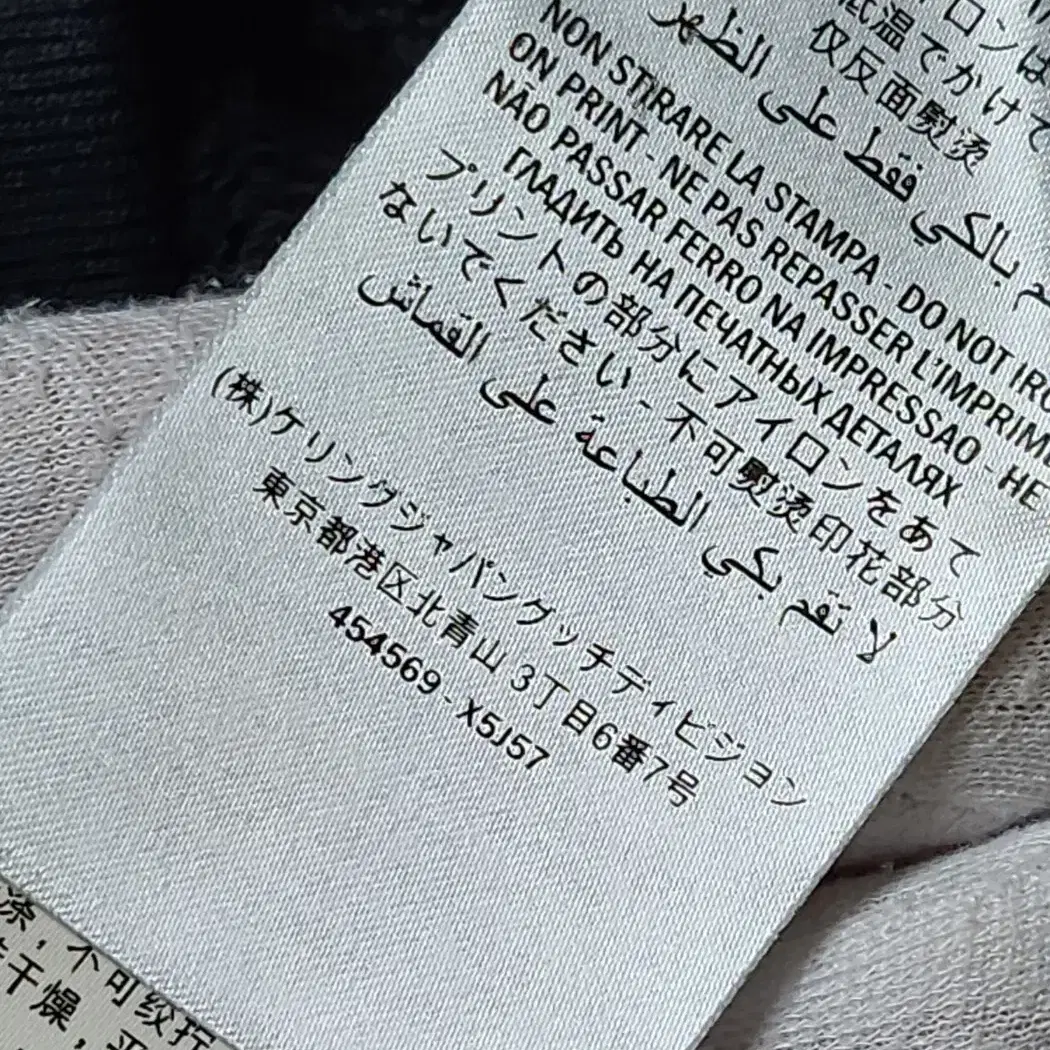 ロンは
低温でかけて
仅反面熨烫
قم بالكي فقط على الظهر
NON STIRARE LA STAMPA - DO NOT IRO
ON PRINT - NE PAS REPASSER L'IMPRIM
NÃO PASSAR FERRO NA IMPRESSAO - НЕ
ГЛАДИТЬ НА ПЕЧАТНЫХ ДЕТАЛЯХ
プリントの部分にアイロンをあて
ないでください - 不可熨烫印花部分
لا تقم بكي الطباعة على القماش
(株)ケリングジャパングッチディビジョン
東京都港区北青山 3丁目6番7号
454569 - X5J57
涤，不可绞拧
干燥，平